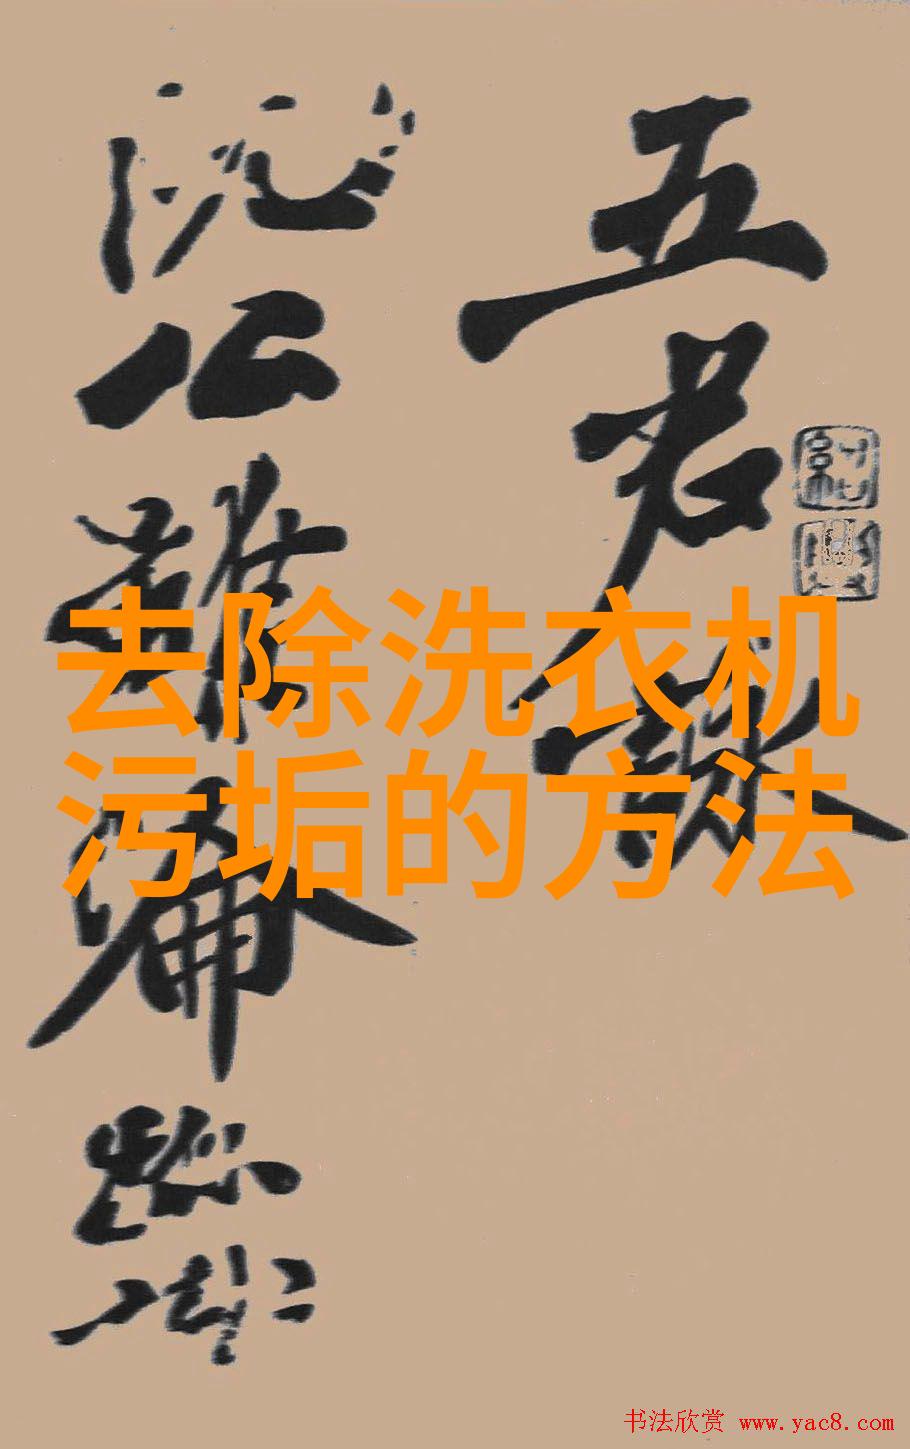 五君詠
阮公雖淪跡
去除洗衣机
污垢的方法
书法欣赏 www.yac8.com